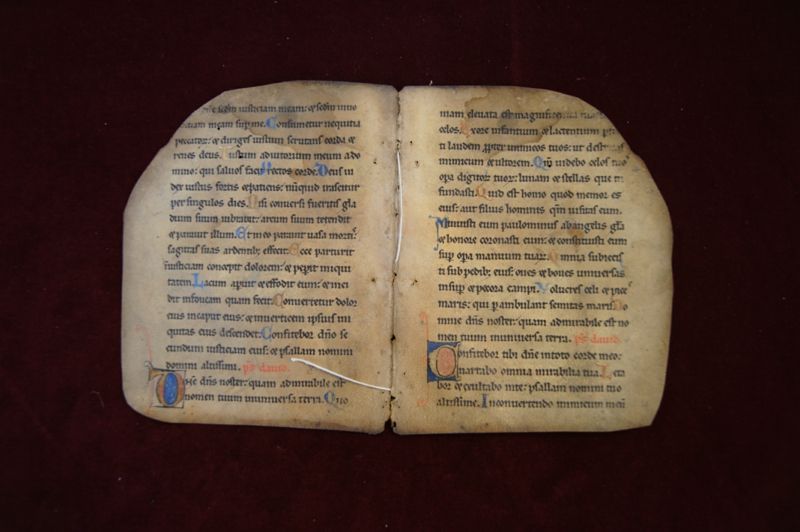 me scdm iusticiam meam: et scdm inno
meam sup me. Consumetur nequitia
peccatorꝝ: et diriges iustum scrutans corda et
renes deus. Iustum adiutorium meum a do
mino: qui saluos facit rectos corde. Deus iu
dex iustus fortis et patiens: nũquid irascitur
per singulos dies. Nisi conuersi fueritis gla
dium suum uibrabit: arcum suum tetendit
et parauit illum. Et in eo parauit uasa mortis:
sagitas suas ardentibꝫ effecit. Ecce parturit
iniusticiam concepit dolorem: et peperit iniqui
tatem. Lacum aperuit et effodit eum: et inci
dit in foueam quam fecit. Conuertetur dolor
eius in caput eius: et in uerticem ipsius ini
quitas eius descendet. Confitebor dño se
cundum iusticiam eius: et psallam nomini
domini altissimi. ps dauid.
Dñe dñs noster: quam admirabile est
nomen tuum in uniuersa terra. Quo
niam eleuata est magnificentia tua
celos. Ex ore infantium et lactentium p
ti laudem ꝓpter inimicos tuos: ut destr
inimicum et ultorem. Qm uidebo celos tuo
opa digitoꝝ tuoꝝ: lunam et stellas que tu
fundasti. Quid est homo quod memor es
eius: aut filius hominis qm uisitas eum.
Minuisti eum paulominus ab angelis gla
et honore coronasti eum: et constituisti eum
sup opa manuum tuaꝝ. Omnia subiecis
ti sub pedibꝫ eius: oues et boues uniuersas
insup et pecora campi. Volucres celi et pisces
maris: qui pambulant semitas maris. Do
mine dñs noster: quam admirabile est no
men tuum in uniuersa terra. ps dauid.
Confitebor tibi dñe in toto corde meo:
narrabo omnia mirabilia tua. Leta
bor et exultabo in te: psallam nomini tuo
altissime. In conuertendo inimicum meũ